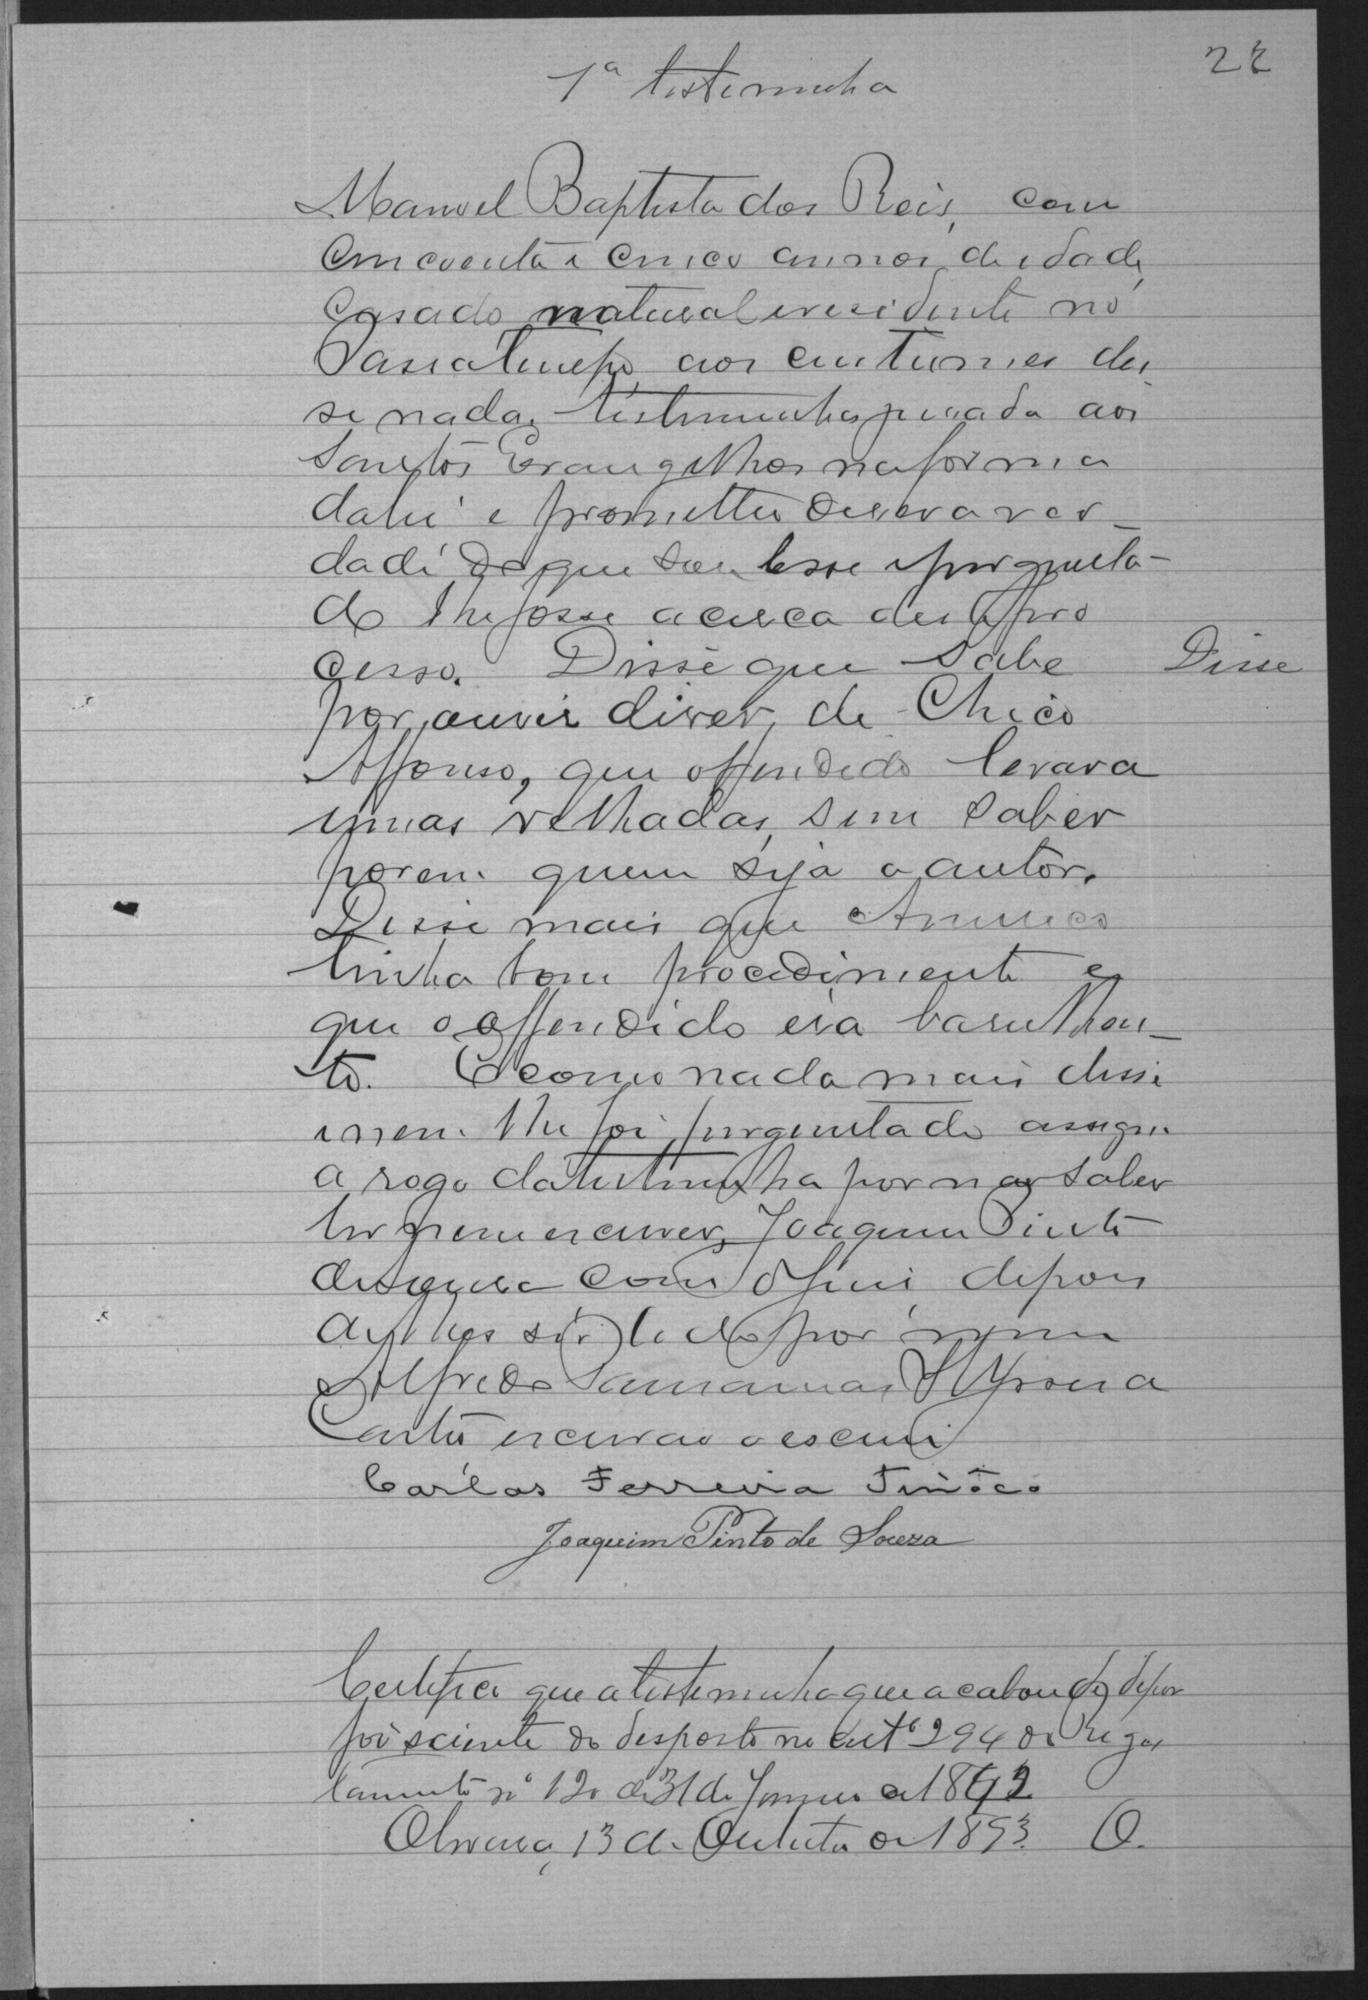 22
1ª testeminha
Manoel Baptista dos Reis, com
cincoenta e cinco annos de idade,
casado natural e residente no
Passatempo aos custumes dis
se nada, testimunha jurada aos
Sanctos Evangelhos na forma
da lei e prometteu diser a ver-
dade do que soubesse e pergunta-
do lhe fosse acerca deste pro
cesso. Disse que sabe Disse
por ouvir diser, de Chico
Affonso, que offendido levara
umas relhadas, sem saber
porem quem seja o autor.
Disse mais que Americo
tinha bom procedimento e
que o offendido era barulhen-
to. E como nada mais disse
e nem lhe foi perguntado assigna
a rogo da testimunha por não saber
ler nem escrever, Joaquim Pinto
de Souza com o Juiz depois
de lhes ser lido por mim
Alfredo
escrivão o escrevi
Carlos Ferreira Tinôco
Joaquim Pinto de Souza
Certifico que a testeminha que acabou de depor
foi sciente do desposto no Art.º 294 do Regu
lamento nº 120 de 31 de Janeiro de 1842
Oliveira, 13 de Outubro de 1893. O.